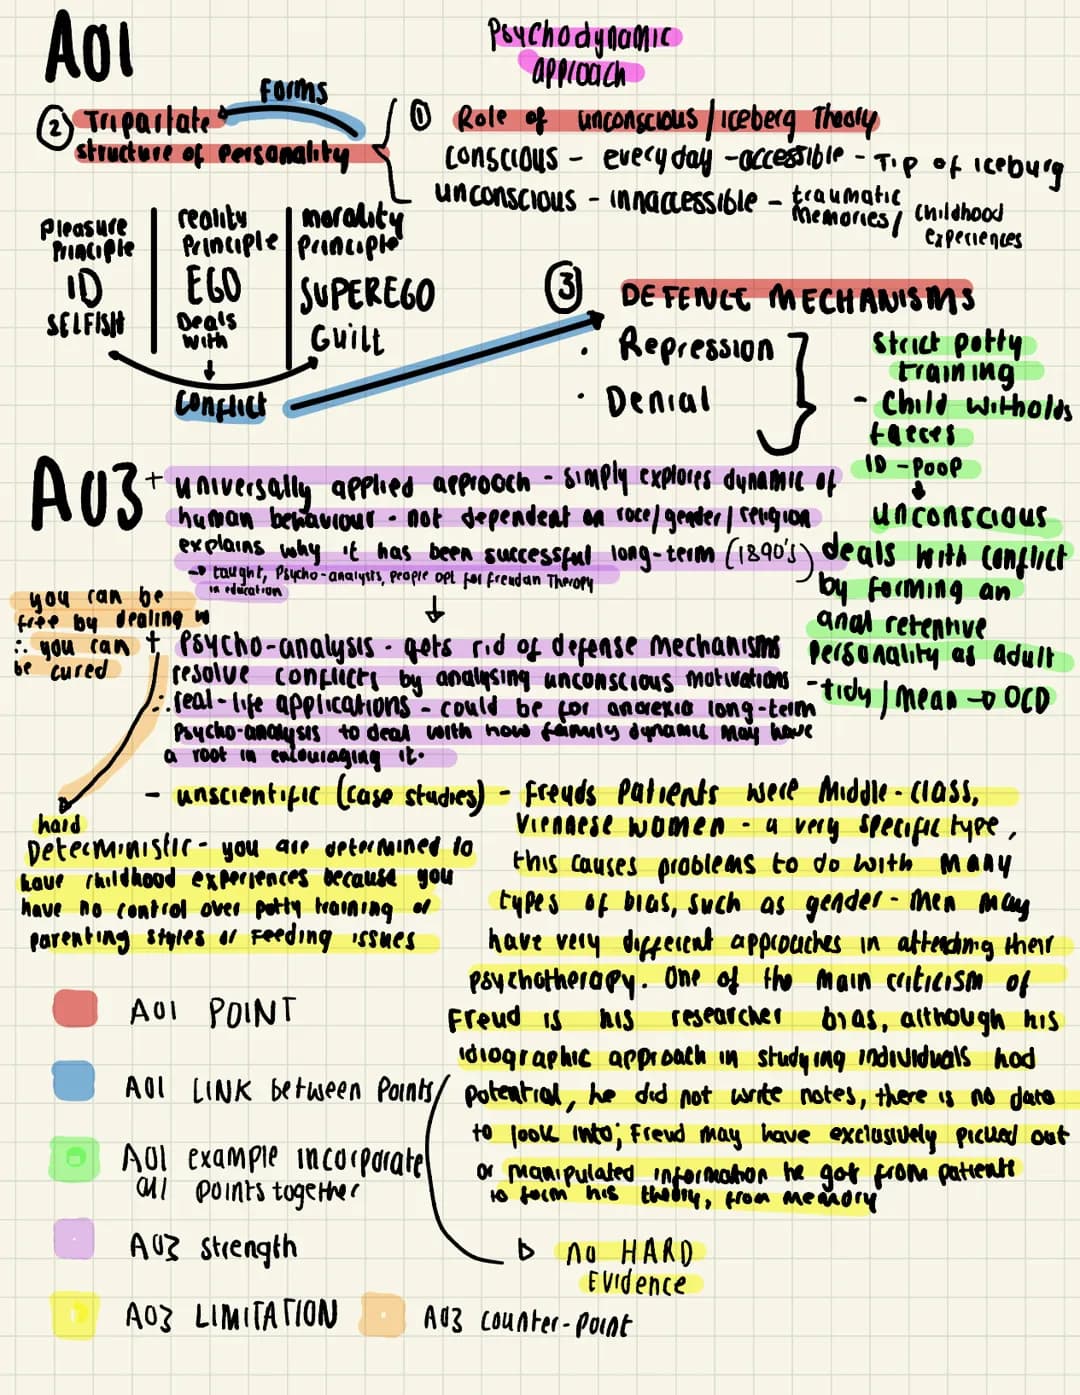 AO1
Psychodynamic
approach
Forms
② Tripartate
structure of personality
① Role of unconscious / iceberg Theory
CONSCIOUS - everyday - accessible - Tip of iceburg
unconscious - innaccessible - traumatic memories / childhood experiences
Pleasure Principle
ID
SELFISH
reality Principle
EGO
Deals with
morality principle
SUPEREGO
Guilt
conflict
③ DEFENCE MECHANISMS
· Repression
· Denial
Strict potty
training
- Child witholds
faeces
ID - poop
unconscious
deals with conflict
by forming an
anal retentive
personality as adult
- tidy / mean → OCD
AO3
+ universally applied approach - simply explores dynamic of
human behaviour - not dependent on race / gender / religion
explains why it has been successful long-term (1890's)
→ taught, Psycho-analysts, people opt for freudan Therapy
in education
you can be
free by dealing w
∴ you can
be cured
+ Psycho-analysis - gets rid of defense mechanisms
resolve conflicts by analysing unconscious motivations
∴ real-life applications - could be for anorexia long-term
Psycho-analysis to deal with how family dynamic may have
a root in encouraging it.
- unscientific (case studies) - Freuds Patients were Middle-class,
Viennese women - a very specific type,
this causes problems to do with many
types of bias, such as gender - men may
have very different approaches in attending their
psychotherapy. One of the main criticism of
Freud is his researcher bias, although his
idiographic approach in studying individuals had
potential, he did not write notes, there is no data
to look into; Freud may have exclusively picked out
or manipulated information he got from patients
to form his theory, from memory
no HARD
Evidence
hard
Deterministic - you are determined to
have childhood experiences because you
have no control over potty training or
parenting styles or Feeding issues
AO1 POINT
AO1 LINK between Points
AO1 example incorporate
all points together
AO3 strength
AO3 LIMITATION
AO3 counter-point